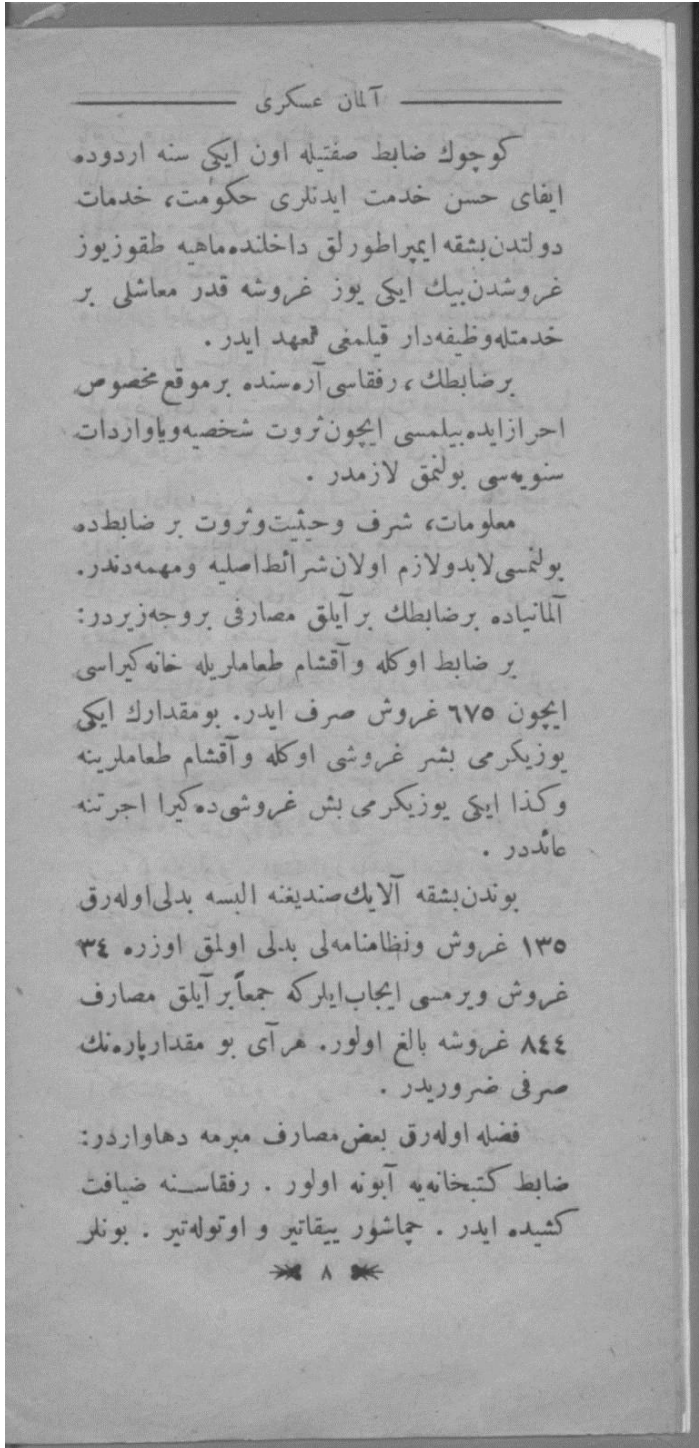 آلمان عسكرى
كوچوك ضابط صفتيله اون ايكى سنه اردوده
ايفاى حسن خدمت ايدنلرى حكومت، خدمات
دولتدن بشقه ايمپراطورلق داخلنده ماهيه طقوز يوز
غروشدن بيك ايكى يوز غروشه قدر معاشلى بر
خدمتله وظيفه دار قيلمغى تعهد ايدر .
بر ضابطك، رفقاسى آره سنده بر موقع مخصوص
احراز ايده بيلمسى ايچون ثروت شخصيه ويا واردات
سنويه سى بولنمق لازمدر .
معلومات، شرف وحيثيت وثروت بر ضابطده
بولنمسى لابد ولازم اولان شرائط اصليه ومهمه دندر.
آلمانياده بر ضابطك بر آيلق مصارفى بروجه زيردر:
بر ضابط اوكله وآقشام طعاملريله خانه كيراسى
ايچون ٦٧٥ غروش صرف ايدر. بو مقدارك ايكى
يوز يكرمى بشر غروشى اوكله وآقشام طعاملرينه
وكذا ايكى يوز يكرمى بش غروشى ده كيرا اجرتنه
عائددر .
بوندن بشقه آلايك صنديغنه البسه بدلى اوله رق
١٣٥ غروش ونظامنامه لى بدلى اولمق اوزره ٣٤
غروش ويرمسى ايجاب ايلر كه جمعاً بر آيلق مصارف
٨٤٤ غروشه بالغ اولور. هر آى بو مقدار پاره نك
صرفى ضروريدر .
فضله اوله رق بعض مصارف مبرمه دها واردر:
ضابط كتبخانه يه آبونه اولور . رفقاسنه ضيافت
كشيده ايدر . چماشور ييقاتير و اوتوله تير . بونلر
٨